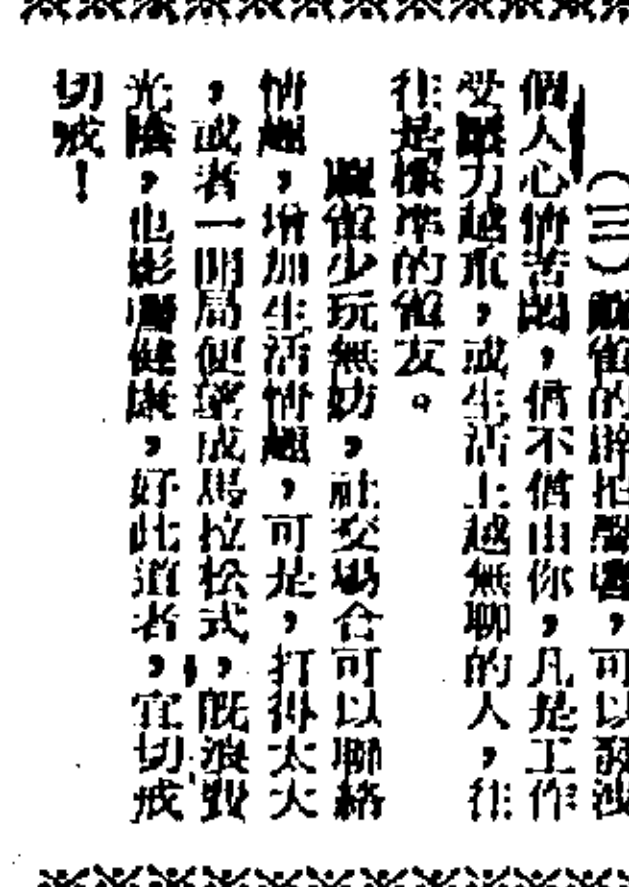 （三）雀的辟拍聲響，可以發洩
個人心情苦悶，信不信由你，凡是工作
受壓力越重，或生活上越無聊的人，往
往是標準的雀友。
雀少玩無妨，社交場合可以聯絡
情趣，增加生活情趣，可是，打得太大
，或者一開局便變成馬拉松式，既浪費
光陰，也影響健康，好此道者，宜切戒
切戒！